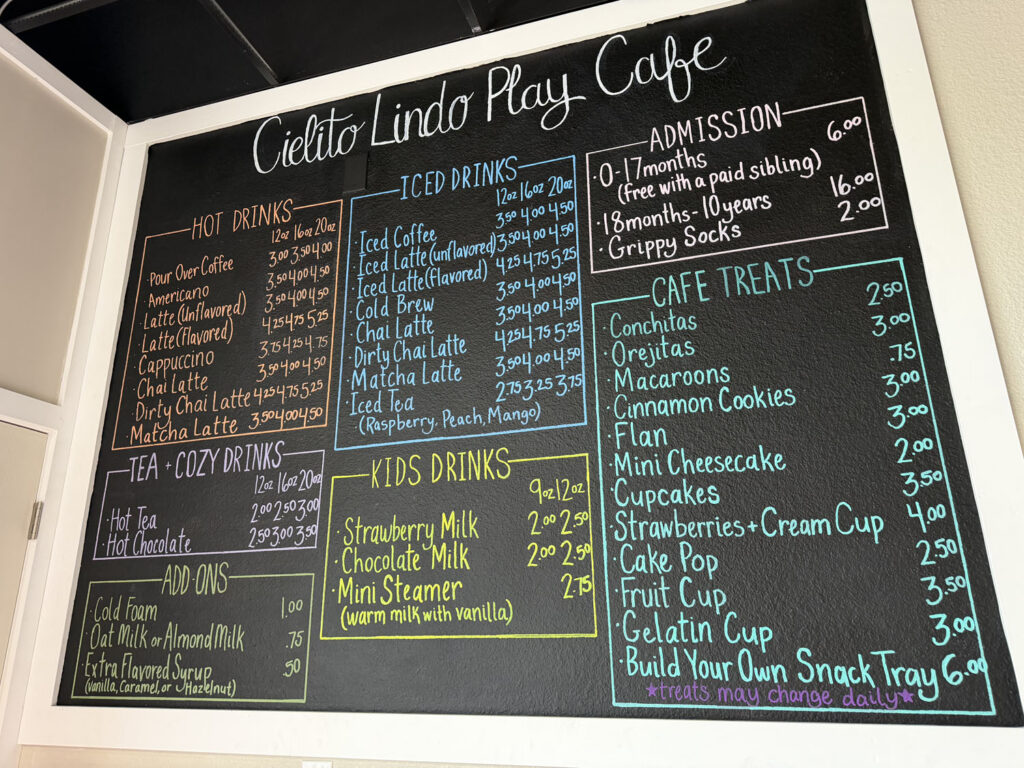 Cielito Lindo Play Cafe
HOT DRINKS
12oz 16oz 20oz
· Pour Over Coffee 3.00 3.50 4.00
· Americano 3.50 4.00 4.50
· Latte (Unflavored) 3.50 4.00 4.50
· Latte (Flavored) 4.25 4.75 5.25
· Cappuccino 3.75 4.25 4.75
· Chai Latte 3.50 4.00 4.50
· Dirty Chai Latte 4.25 4.75 5.25
· Matcha Latte 3.50 4.00 4.50
TEA + COZY DRINKS
12oz 16oz 20oz
· Hot Tea 2.00 2.50 3.00
· Hot Chocolate 2.50 3.00 3.50
ADD-ONS
· Cold Foam 1.00
· Oat Milk or Almond Milk .75
· Extra Flavored Syrup .50
(Vanilla, Caramel, or Hazelnut)
ICED DRINKS
12oz 16oz 20oz
· Iced Coffee 3.50 4.00 4.50
· Iced Latte (unflavored) 3.50 4.00 4.50
· Iced Latte (Flavored) 4.25 4.75 5.25
· Cold Brew 3.50 4.00 4.50
· Chai Latte 3.50 4.00 4.50
· Dirty Chai Latte 4.25 4.75 5.25
· Matcha Latte 3.50 4.00 4.50
· Iced Tea 2.75 3.25 3.75
(Raspberry, Peach, Mango)
KIDS DRINKS
9oz 12oz
· Strawberry Milk 2.00 2.50
· Chocolate Milk 2.00 2.50
· Mini Steamer 2.75
(warm milk with vanilla)
ADMISSION
· 0-17months 6.00
(free with a paid sibling)
· 18months-10years 16.00
· Grippy Socks 2.00
CAFE TREATS
· Conchitas 2.50
· Orejitas 3.00
· Macaroons .75
· Cinnamon Cookies 3.00
· Flan 3.00
· Mini Cheesecake 2.00
· Cupcakes 3.50
· Strawberries + Cream Cup 4.00
· Cake Pop 2.50
· Fruit Cup 3.50
· Gelatin Cup 3.00
· Build Your Own Snack Tray 6.00
★treats may change daily★